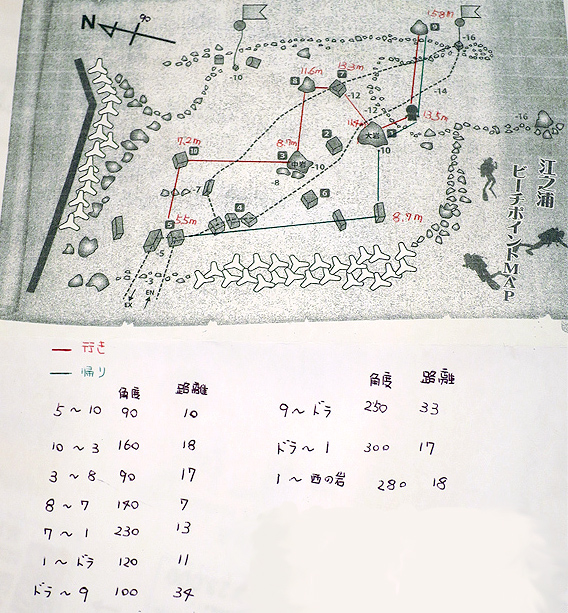 N
90
15.8m
-16
9
-10
11.6m
13.3m
8
7
-12
-14
-12
11.4
大岩
1
13.5m
-10
-16
7.2m
10
8.7m
3
中岩
-10
-8
2
-7
6
4
5.5m
5
-5
8.9m
-3
EX
EN
江之浦
ビーチポイントMAP
行き
帰り
角度 距離
5～10 90 10
10～3 160 18
3～8 90 17
8～7 140 7
7～1 230 13
1～ドラ 120 11
ドラ～9 100 34
角度 距離
9～ドラ 250 33
ドラ～1 300 17
1～西の岩 280 18